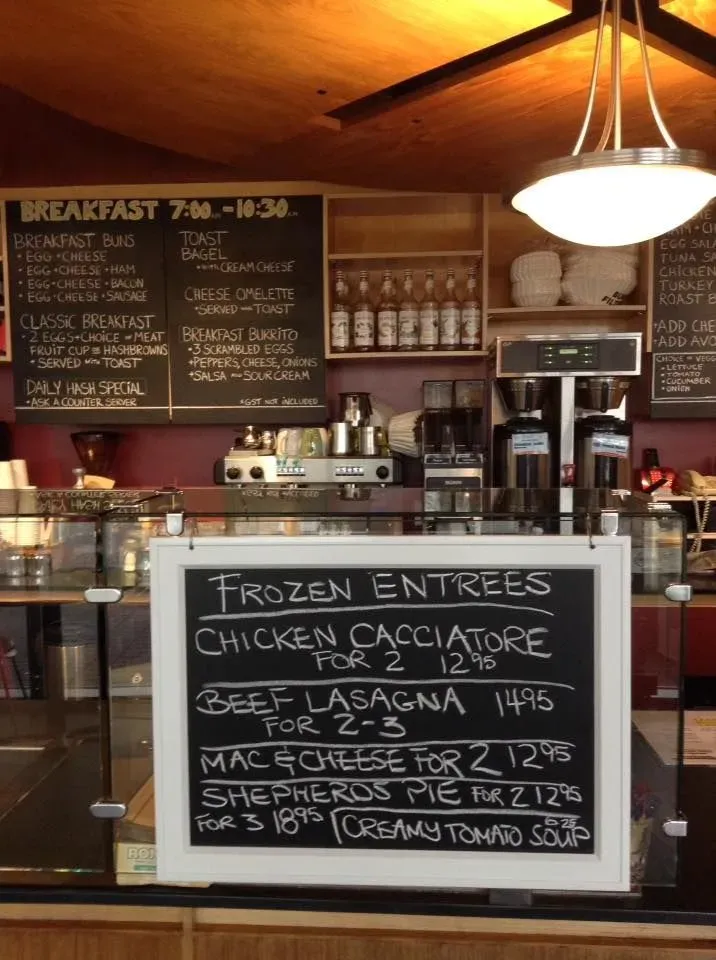 BREAKFAST 7:00AM - 10:30AM
BREAKFAST BUNS
• EGG + CHEESE
• EGG + CHEESE + HAM
• EGG + CHEESE + BACON
• EGG + CHEESE + SAUSAGE
CLASSIC BREAKFAST
• 2 EGGS + CHOICE OF MEAT
FRUIT CUP OR HASHBROWNS
• SERVED WITH TOAST
DAILY HASH SPECIAL
• ASK A COUNTER SERVER
TOAST
BAGEL
• WITH CREAM CHEESE
CHEESE OMELETTE
• SERVED WITH TOAST
BREAKFAST BURRITO
• 3 SCRAMBLED EGGS
• PEPPERS, CHEESE, ONIONS
• SALSA AND SOUR CREAM
* GST NOT INCLUDED
EGG SALA
TUNA SA
CHICKEN
TURKEY
ROAST B
• ADD CHE
• ADD AVO
CHOICE OF VEGG
• LETTUCE
• TOMATO
• CUCUMBER
• ONION
BUNN
FROZEN ENTREES
CHICKEN CACCIATORE
FOR 2 12.95
BEEF LASAGNA 14.95
FOR 2-3
MAC & CHEESE FOR 2 12.95
SHEPHERDS PIE FOR 2 12.95
FOR 3 18.95 CREAMY TOMATO SOUP 6.25